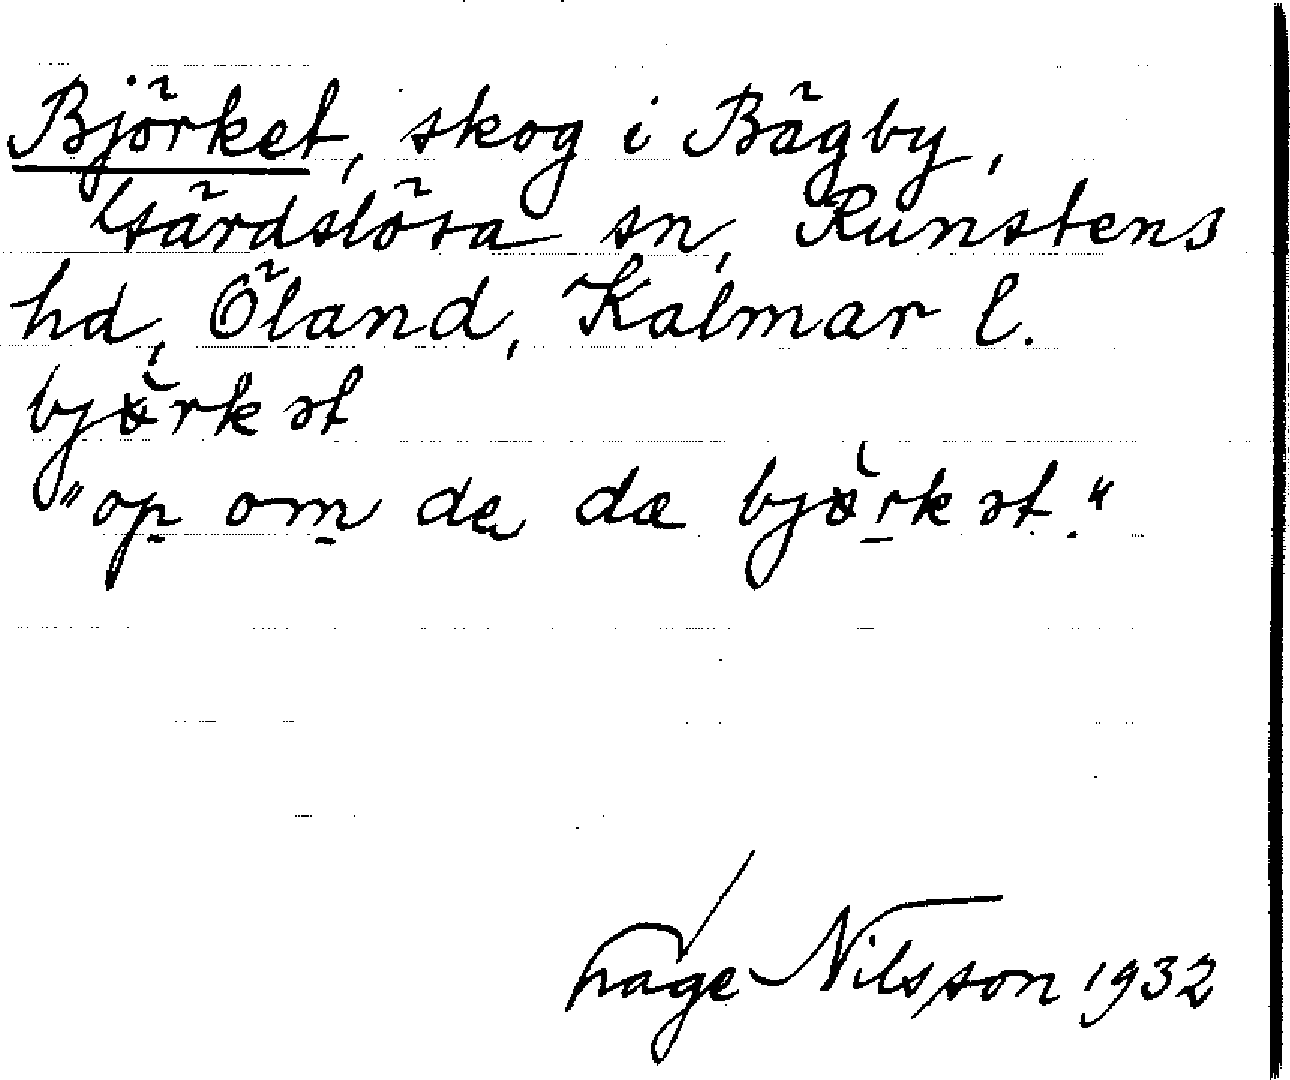 Björket, skog i Bägby,
Gärdslösa sn, Runstens
hd, Öland, Kalmar l.
björkət
"op om de dæ björkət."
Tage Nilsson 1932